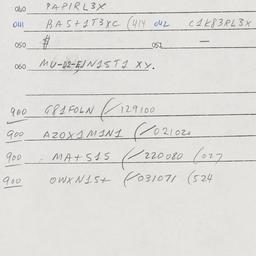 040 PAPIRL3X
041 BAS+1T3XC (414 042 C1K83RL3X
050 # 052 —
060 MU-02-EIN15T1 XY.
900 G81FOLN (/129100
900 AZOX1M1N1 (/021020
900 : MA+515 (/220080 (027
900 OWXN15+ (/031071 (524